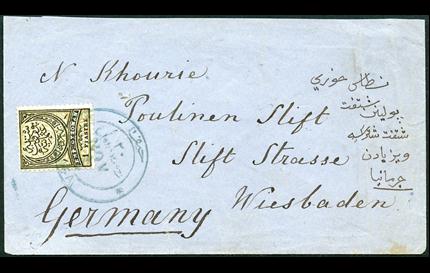 N Khourie
Poulinen Slift
Slift Strasse
Wiesbaden
Germany
خوري
بولينن شتفت
شتفت شتراسه
ويزبادن
جرمانيا
1 PIASTRE